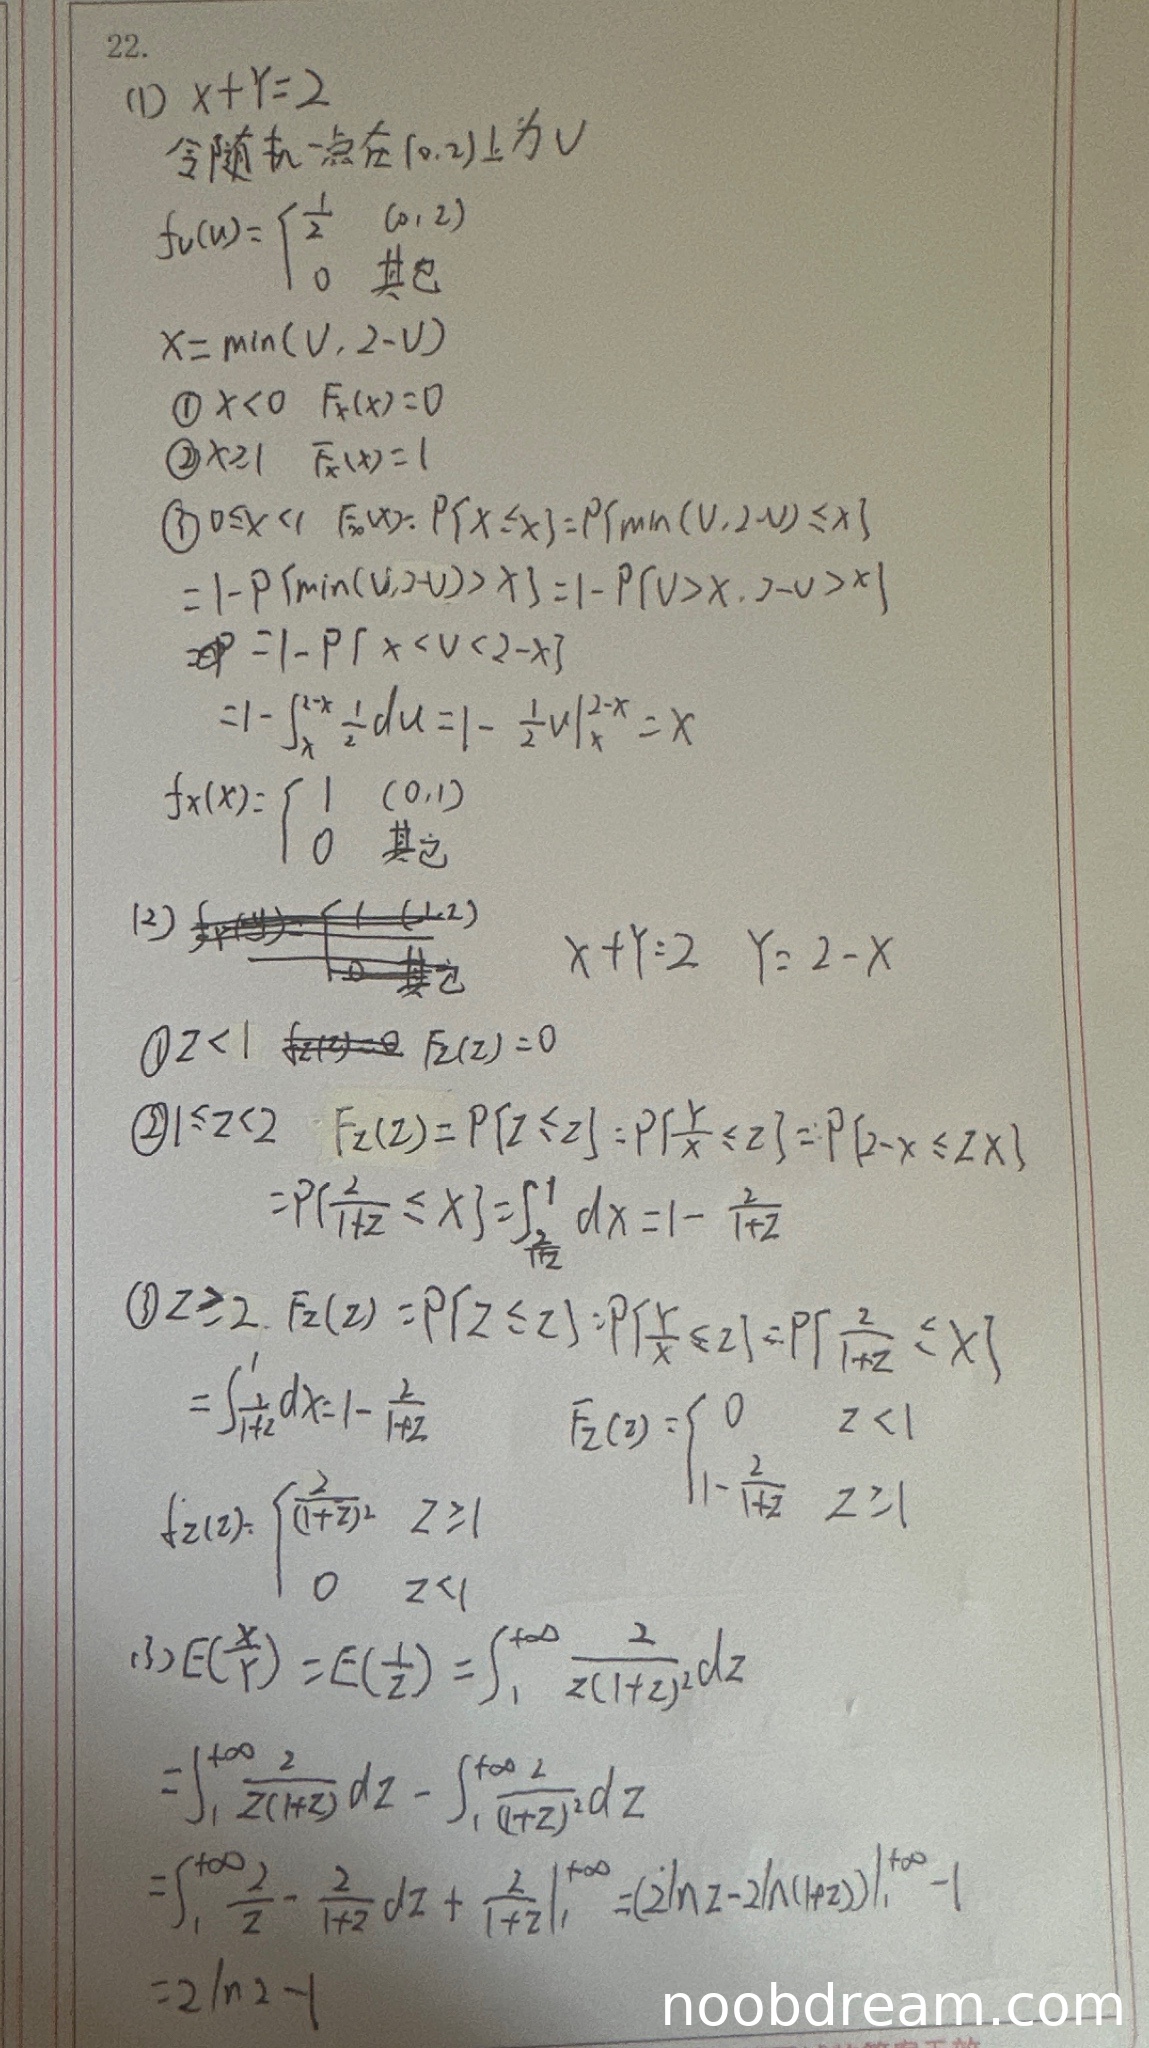 22.
(1) X+Y=2
令随机一点在(0,2)上为U
f_U(u)={1/2 (0,2)
0 其它
X=min(U,2-U)
①x<0 F_X(x)=0
②x≥1 F_X(x)=1
③0≤x<1 F_X(x)=P{X≤x}=P{min(U,2-U)≤x}
=1-P{min(U,2-U)>x}=1-P{U>x,2-U>x}
=1-P{x<U<2-x}
=1-∫_x^{2-x} 1/2 du=1-1/2u|_x^{2-x}=x
f_X(x)={1 (0,1)
0 其它
(2) X+Y=2 Y=2-X
①z<1 F_Z(z)=0
②1≤z<2 F_Z(z)=P{Z≤z}=P{Y/X≤z}=P{2-X≤zX}
=P{2/(1+z)≤X}=∫_{2/(1+z)}^1 dx=1-2/(1+z)
③z≥2. F_Z(z)=P{Z≤z}=P{Y/X≤z}=P{2/(1+z)≤X}
=∫_{2/(1+z)}^1 dx=1-2/(1+z)
F_Z(z)={0 z<1
1-2/(1+z) z≥1
f_Z(z)={2/(1+z)² z≥1
0 z<1
(3)E(X/Y)=E(1/Z)=∫_1^{+∞} 2/(z(1+z)²)dz
=∫_1^{+∞} 2/(z(1+z))dz-∫_1^{+∞} 2/(1+z)²dz
=∫_1^{+∞} 2/z-2/(1+z)dz+2/(1+z)|_1^{+∞}=(2lnz-2ln(1+z))|_1^{+∞}-1
=2ln2-1
noobdream.com